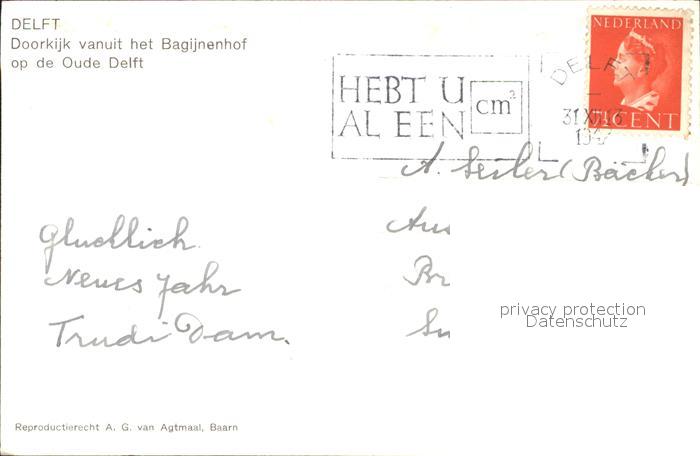 DELFT
Doorkijk vanuit het Bagijnenhof
op de Oude Delft
HEBT U
AL EEN
cm²
DELFT
NEDERLAND
7½ CENT
A. Seiler (Bäcker)
Glücklich
Neues Jahr
Trudi Dam.
privacy protection
Datenschutz
Reproductierecht A. G. van Agtmaal, Baarn